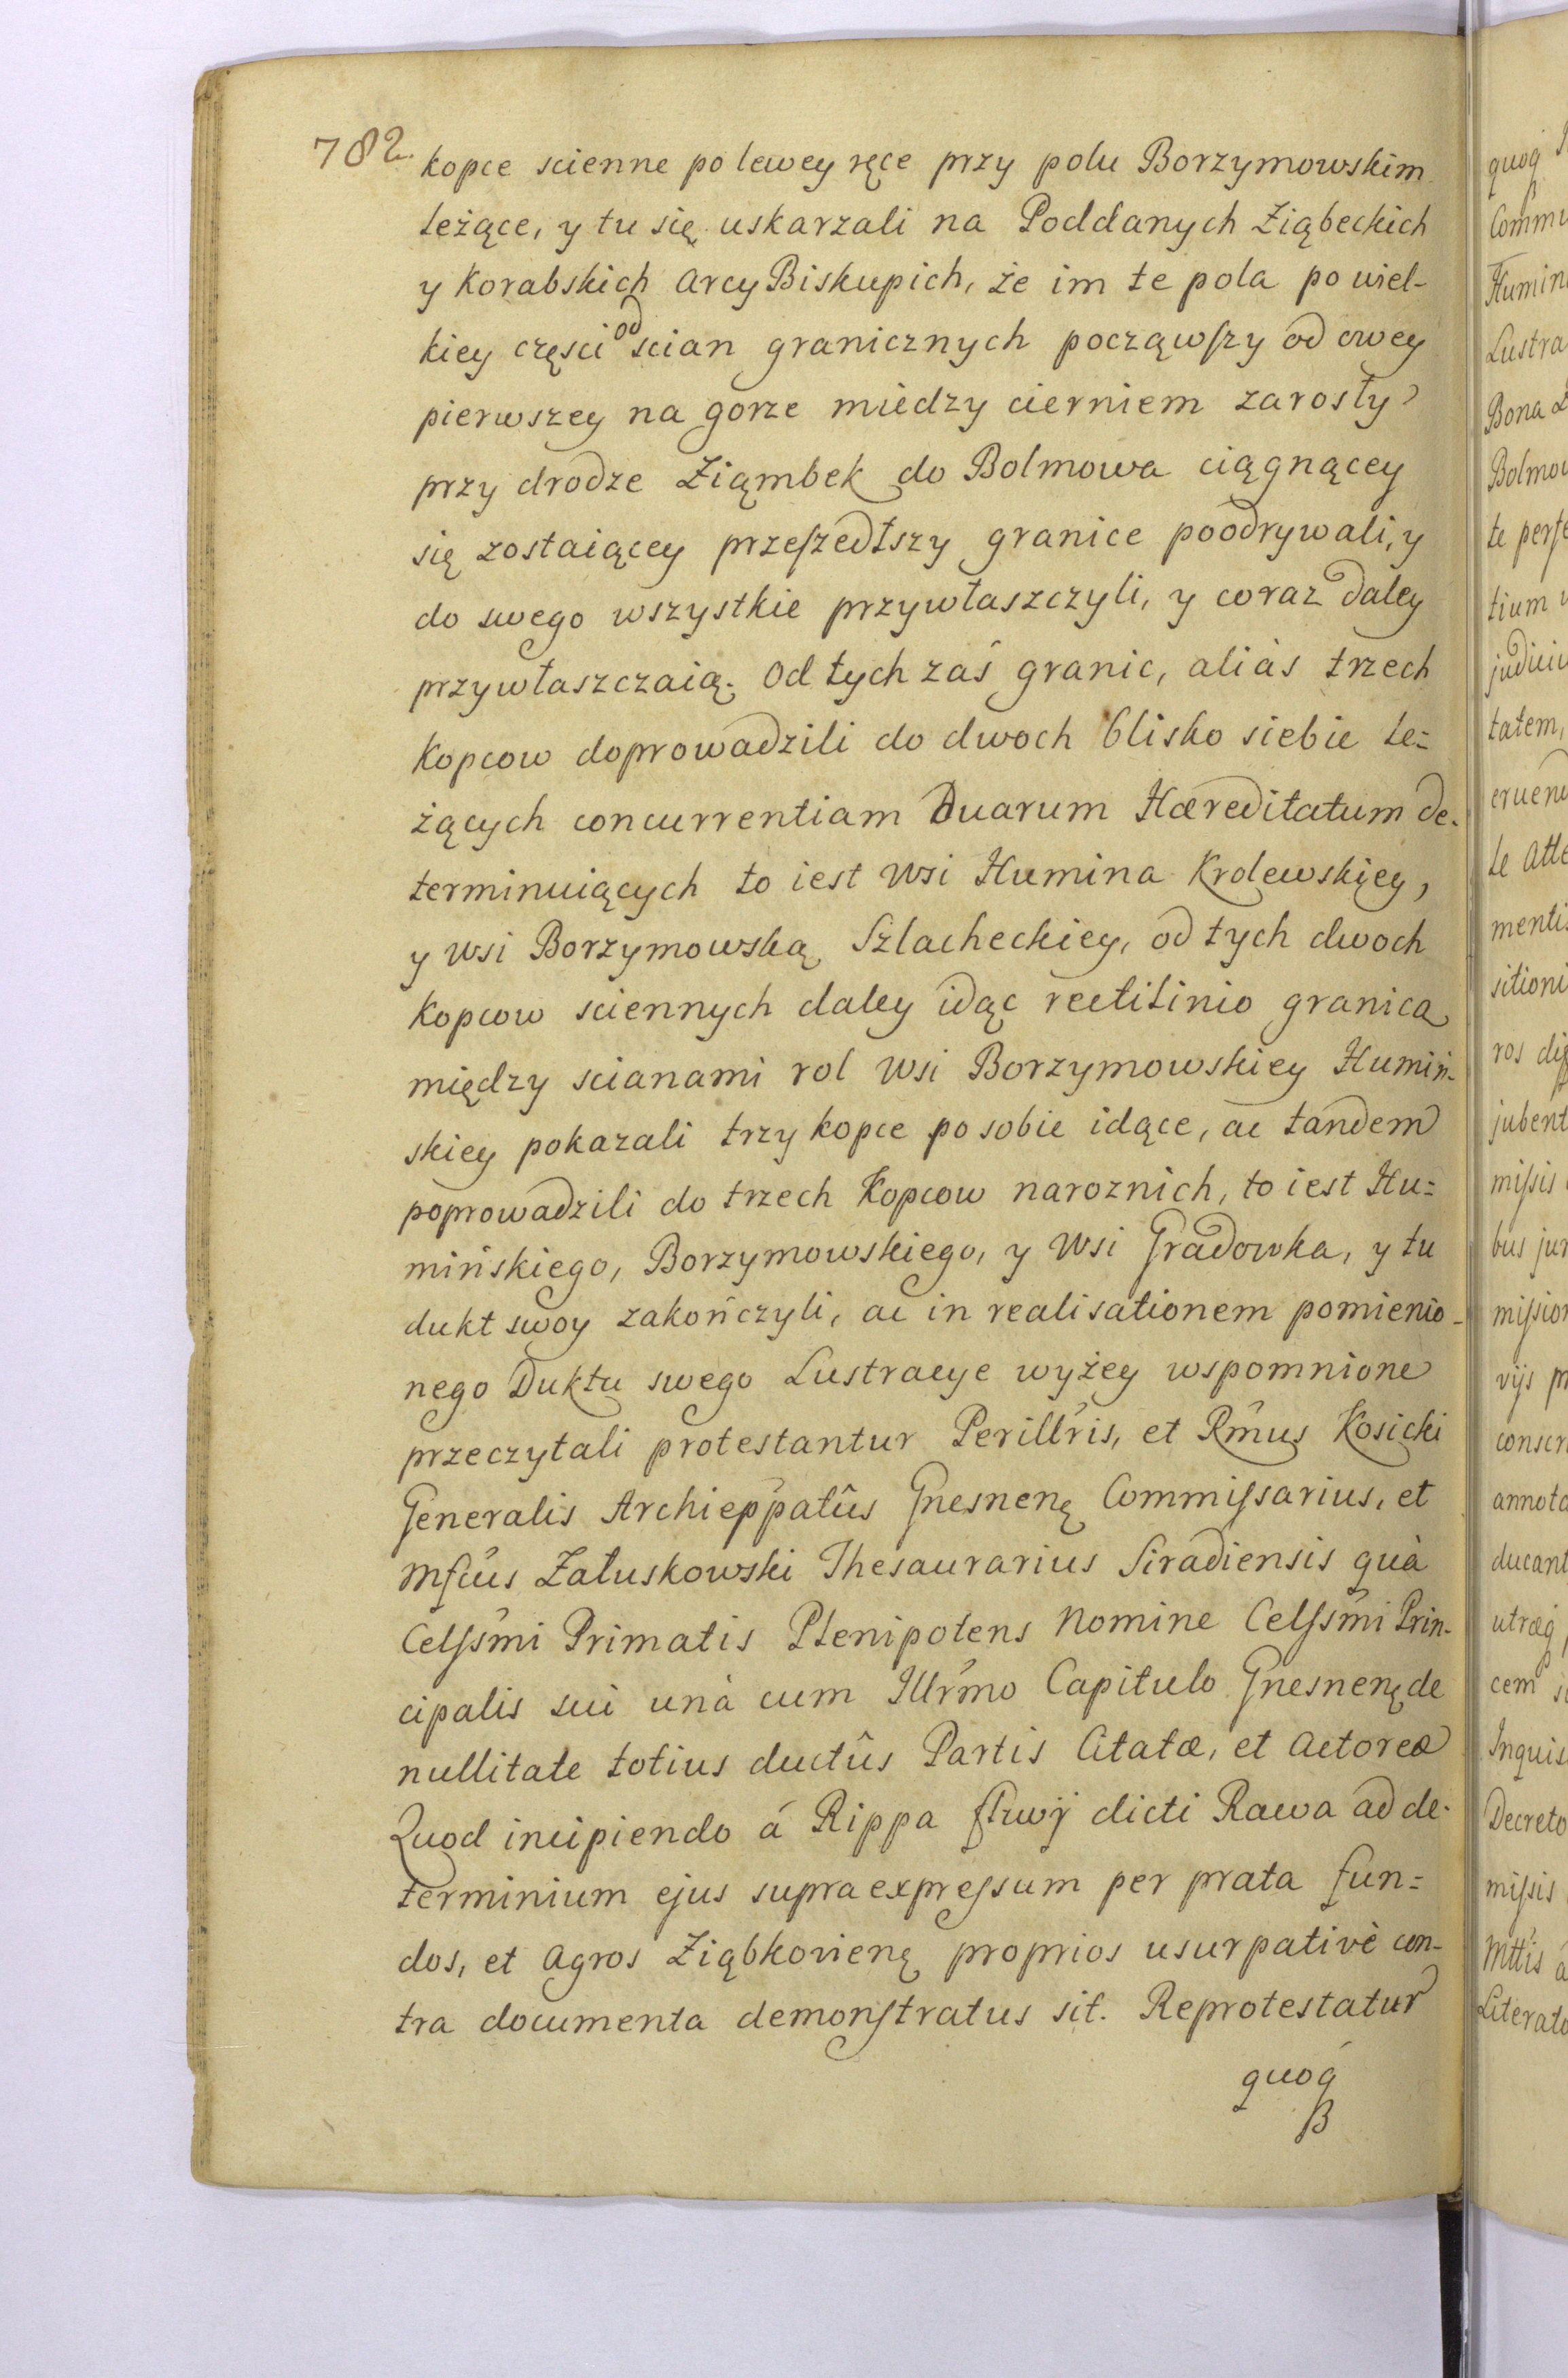 782.
kopce scienne po lewey ręce przy polu Borzymowskim
leżące, y tu się uskarzali na Poddanych Ziąbeckich
y Korabskich ArcyBiskupich, że im te pola po wiel-
kiey części od scian granicznych począwszy od owey
pierwszey na gorze między cierniem zarosły
przy drodze Ziąmbek do Bolmowa ciągnącey
się zostaiącey przeszedłszy granice poodrywali, y
do swego wszystkie przywłaszczyli, y coraz daley
przywłaszczaią. Od tych zaś granic, aliàs trzech
Kopcow doprowadzili do dwoch blisko siebie le=
żących concurrentiam Duarum Hæreditatum de-
terminuiących to iest Wsi Humina Krolewskiey,
y Wsi Borzymowską Szlacheckiey, od tych dwoch
Kopcow sciennych daley idąc rectilinio granicą
między scianami rol Wsi Borzymowskiey Humiń-
skiey pokazali trzy kopce po sobie idące, ac tandem
poprowadzili do trzech Kopcow naroznich, to iest Hu=
mińskiego, Borzymowskiego, y Wsi Gradowka, y tu
dukt swoy zakończyli, ac in realisationem pomienio-
nego Duktu swego Lustracye wyżey wspomnione
przeczytali protestantur Perillris, et Rmus Kosicki
Generalis Archieppatûs Gnesnenę Commissarius, et
Mfcus Załuskowski Thesaurarius Siradiensis quà
Celssmi Primatis Plenipotens Nomine Celssmi Prin-
cipalis sui unà cum Illrmo Capitulo Gnesnenę de
nullitate totius ductûs Partis Citatæ, et Actoreæ
Quod incipiendo á Rippa fluvij dicti Rawa ad de-
terminium ejus supra expressum per prata fun=
dos, et Agros Ziąbkovienę proprios usurpativè con-
tra documenta demonstratus sit. Reprotestatur
quoq
quoq
Commu
Humin
Lustra
Bona
Bolmow
te perfe
tium
judiciu
tatem,
eruend
le Atte
mentis
sitioni
ros dis
jubent
missis
bus jur
mission
vijs
conscr
annota
ducant
utræq
cem
Inquis
Decreto
missis
Mttis
Literato